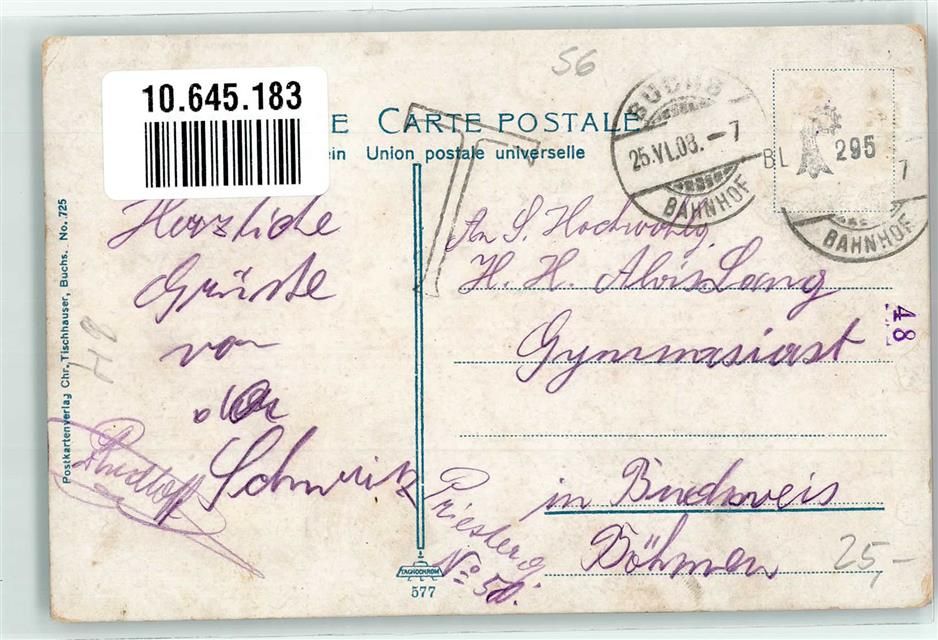 56
10.645.183
E CARTE POSTALE
ein Union postale universelle
BUCHS
25.VI.08.-7
BAHNHOF
BL 295
7
BAHNHOF
T
Postkartenverlag Chr. Tischhauser, Buchs. No. 725
Herzliche
Grüsse
von
der
Schweiz
Rudlof
An S. Hochwohlg.
H. H. Alois Lang
Gymnasiast
in Budweis
Böhmen
Priesterg.
No 50.
48
25,-
TACHOCHROM
577